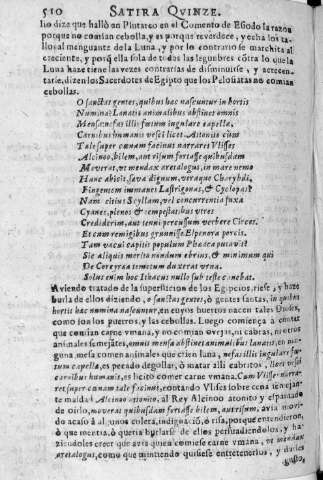 510 SATIRA QVINZE.
lio dize que hallò en Plutarco en el Comento de Esiodo la razon
porque no comian cebolla, y es porque reverdece, y echa los ta-
llos al menguante de la Luna, y por lo contrario se marchita al
creciente, y porq̃ ella sola de todas las legumbres cõtra lo que la
Luna haze tiene las vezes contrarias de disminuirse, y acrecen-
tarse, dizen los Sacerdotes de Egipto que los Pelosiatas no comian
cebollas.
O sanctas gentes, quibus hæc nascuntur in hortis
Numina? Lanatis animalibus abstinet omnis
Mensa: nefas illic fœtum iugulare capellæ.
Carnibus humanis vesci licet. Attonito cùm
Tale super cœnam facinus narraret Vlisses
Alcinoo, bilem, aut risum fortasse quibusdam
Moverat, vt mendax aretalogus, in mare nemo
Hunc abicit, sæva dignum, veraque Charybdi,
Fingentem immanes Læstrigonas, & Cyclopas?
Nam citius Scyllam, vel concurrentia saxa
Cyanes, plenos & tempestatibus vtres
Crediderim, aut tenui percussum verbere Circes.
Et cum remigibus grunnisse Elpenora porcis.
Tam vacui capitis populum Phæaca putavit?
Sic aliquis merito nondum ebrius, & minimum qui
De Corcyræa temetum duxerat vrna.
Solus enim hoc Ithacus nullo sub teste canebat.
Aviendo tratado de la supersticion de los Egipcios, riese, y haze
burla de ellos diziendo, o sanctas gentes, ò gentes santas, in quibus
hortis hæc numina nascuntur, en cuyos huertos nacen tales Dioses,
como son los puerros, y las cebollas. Luego comiença à contar
que comian carne vmana, y no comian ovejas, ni cabras, ni otros
animales semejãtes, omnis mensa abstinet animalibus lanatis, en nin-
guna mesa comen animales que crien lana, nefas illic iugulare fœ-
tum capellæ, es pecado degollar, ò matar alli cabritos, licet vesci
carnibus humanis, es licito comer carne vmana. Cum Vlisses narra-
ret super cœnam tale facinus, contando Vlises sobre cena semejan-
te maldad Alcinoo attonito, al Rey Alcinoo atonito y espantado
de oirlo, moverat quibusdam fortasse bilem, aut risum, avia movi-
do acaso à algunos colera, indignaciõ, ò risa, porque entendieron,
ò que mentia, ò queria burlarse de ellos persuadiendolos, y ha-
ziẽdoles creer que avia quien comiese carne vmana, vt mendax
aretalogus, como que mintiendo quisiese entretenerlos, y darles
gusto,